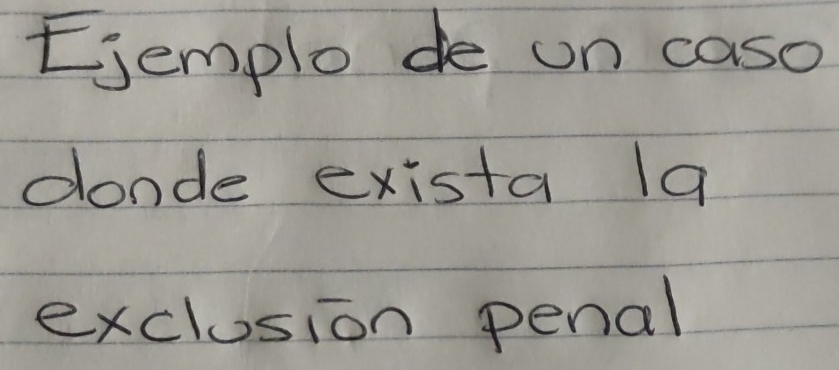 Ejemplo de un caso
donde exista la
exclusión penal